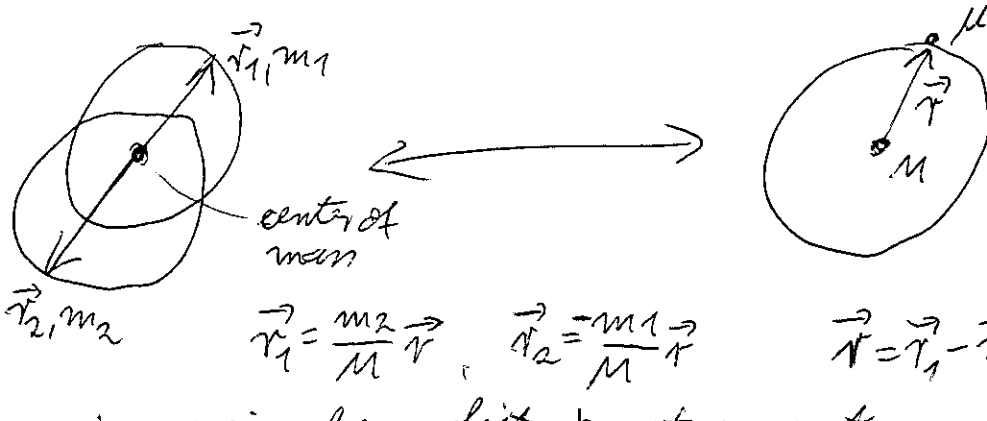 r⃗₁, m₁
μ
r⃗
M
center of
mass
r⃗₂, m₂
r⃗₁ = m₂/M r⃗, r⃗₂ = -m₁/M r⃗
r⃗ = r⃗₁ -